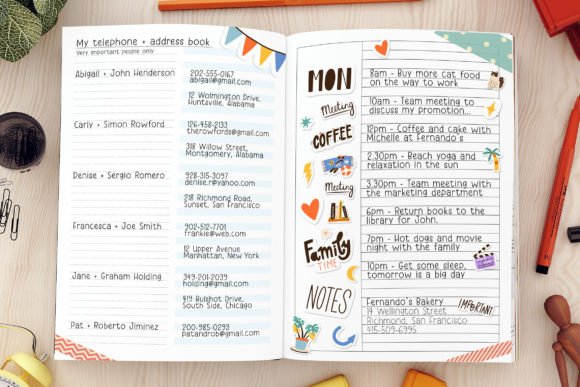 My telephone + address book
Very important people only
Abigail + John Henderson
202-555-0167
abigail@gmail.com
12 Wolmington Drive,
Huntsville, Alabama
Carly + Simon Rowford
126-458-2133
therowfords@gmail.com
318 Willow Street,
Montgomery, Alabama
Denise + Sergio Romero
928-315-3097
denise.r@yahoo.com
218 Richmond Road,
Sunset, San Francisco
Francesca + Joe Smith
902-512-7701
frankie@web.com
12 Upper Avenue
Manhattan, New York
Jane + Graham Holding
349-201-2039
holding@gmail.com
419 Bulshot Drive,
South Side, Chicago
Pat + Roberto Jiminez
200-985-0293
patandrob@gmail.com
MON
Meeting
COFFEE
Meeting
Family
TIME
NOTES
8am - Buy more cat food
on the way to work
10am - Team meeting to
discuss my promotion...
12pm - Coffee and cake with
Michelle at Fernando's
2.30pm - Beach yoga and
relaxation in the sun
3.30pm - Team meeting with
the marketing department
6pm - Return books to the
library for John.
7pm - Hot dogs and movie
night with the family
10pm - Get some sleep,
tomorrow is a big day
Fernando's Bakery
IMPORTANT
14 Wellington Street
Richmond, San Francisco
415-509-6995